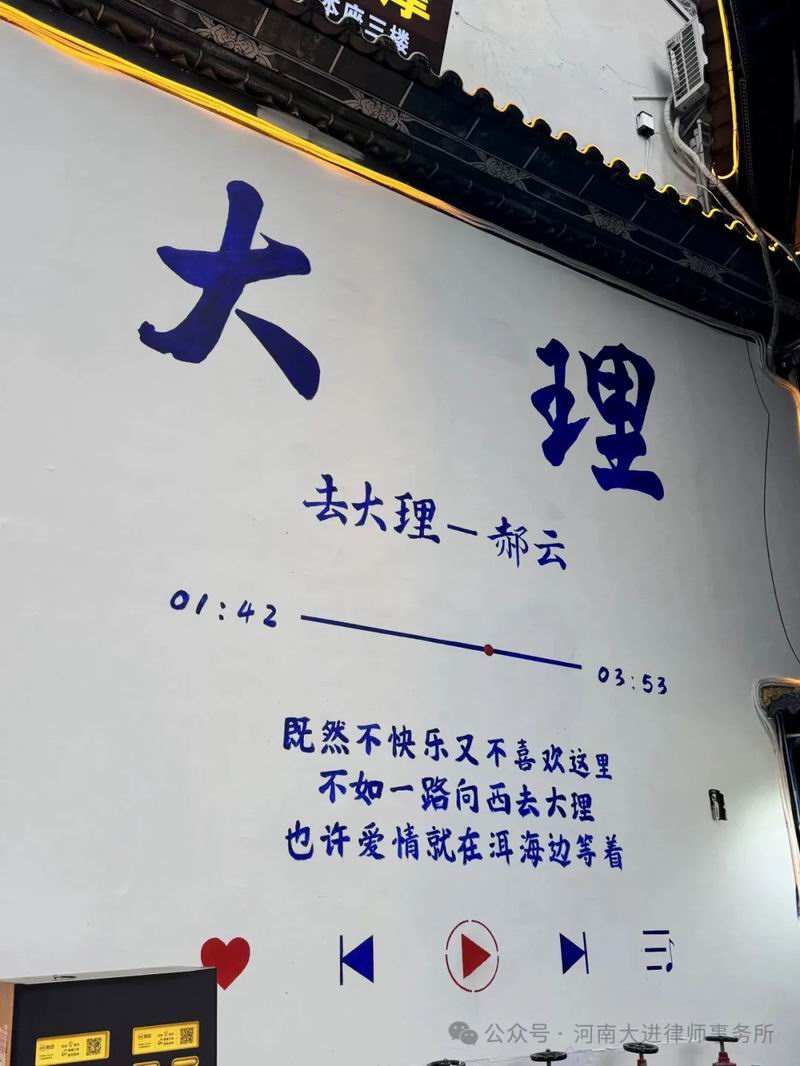 体座三楼
大理
去大理—郝云
01:42
03:53
既然不快乐又不喜欢这里
不如一路向西去大理
也许爱情就在洱海边等着
公众号·河南大进律师事务所